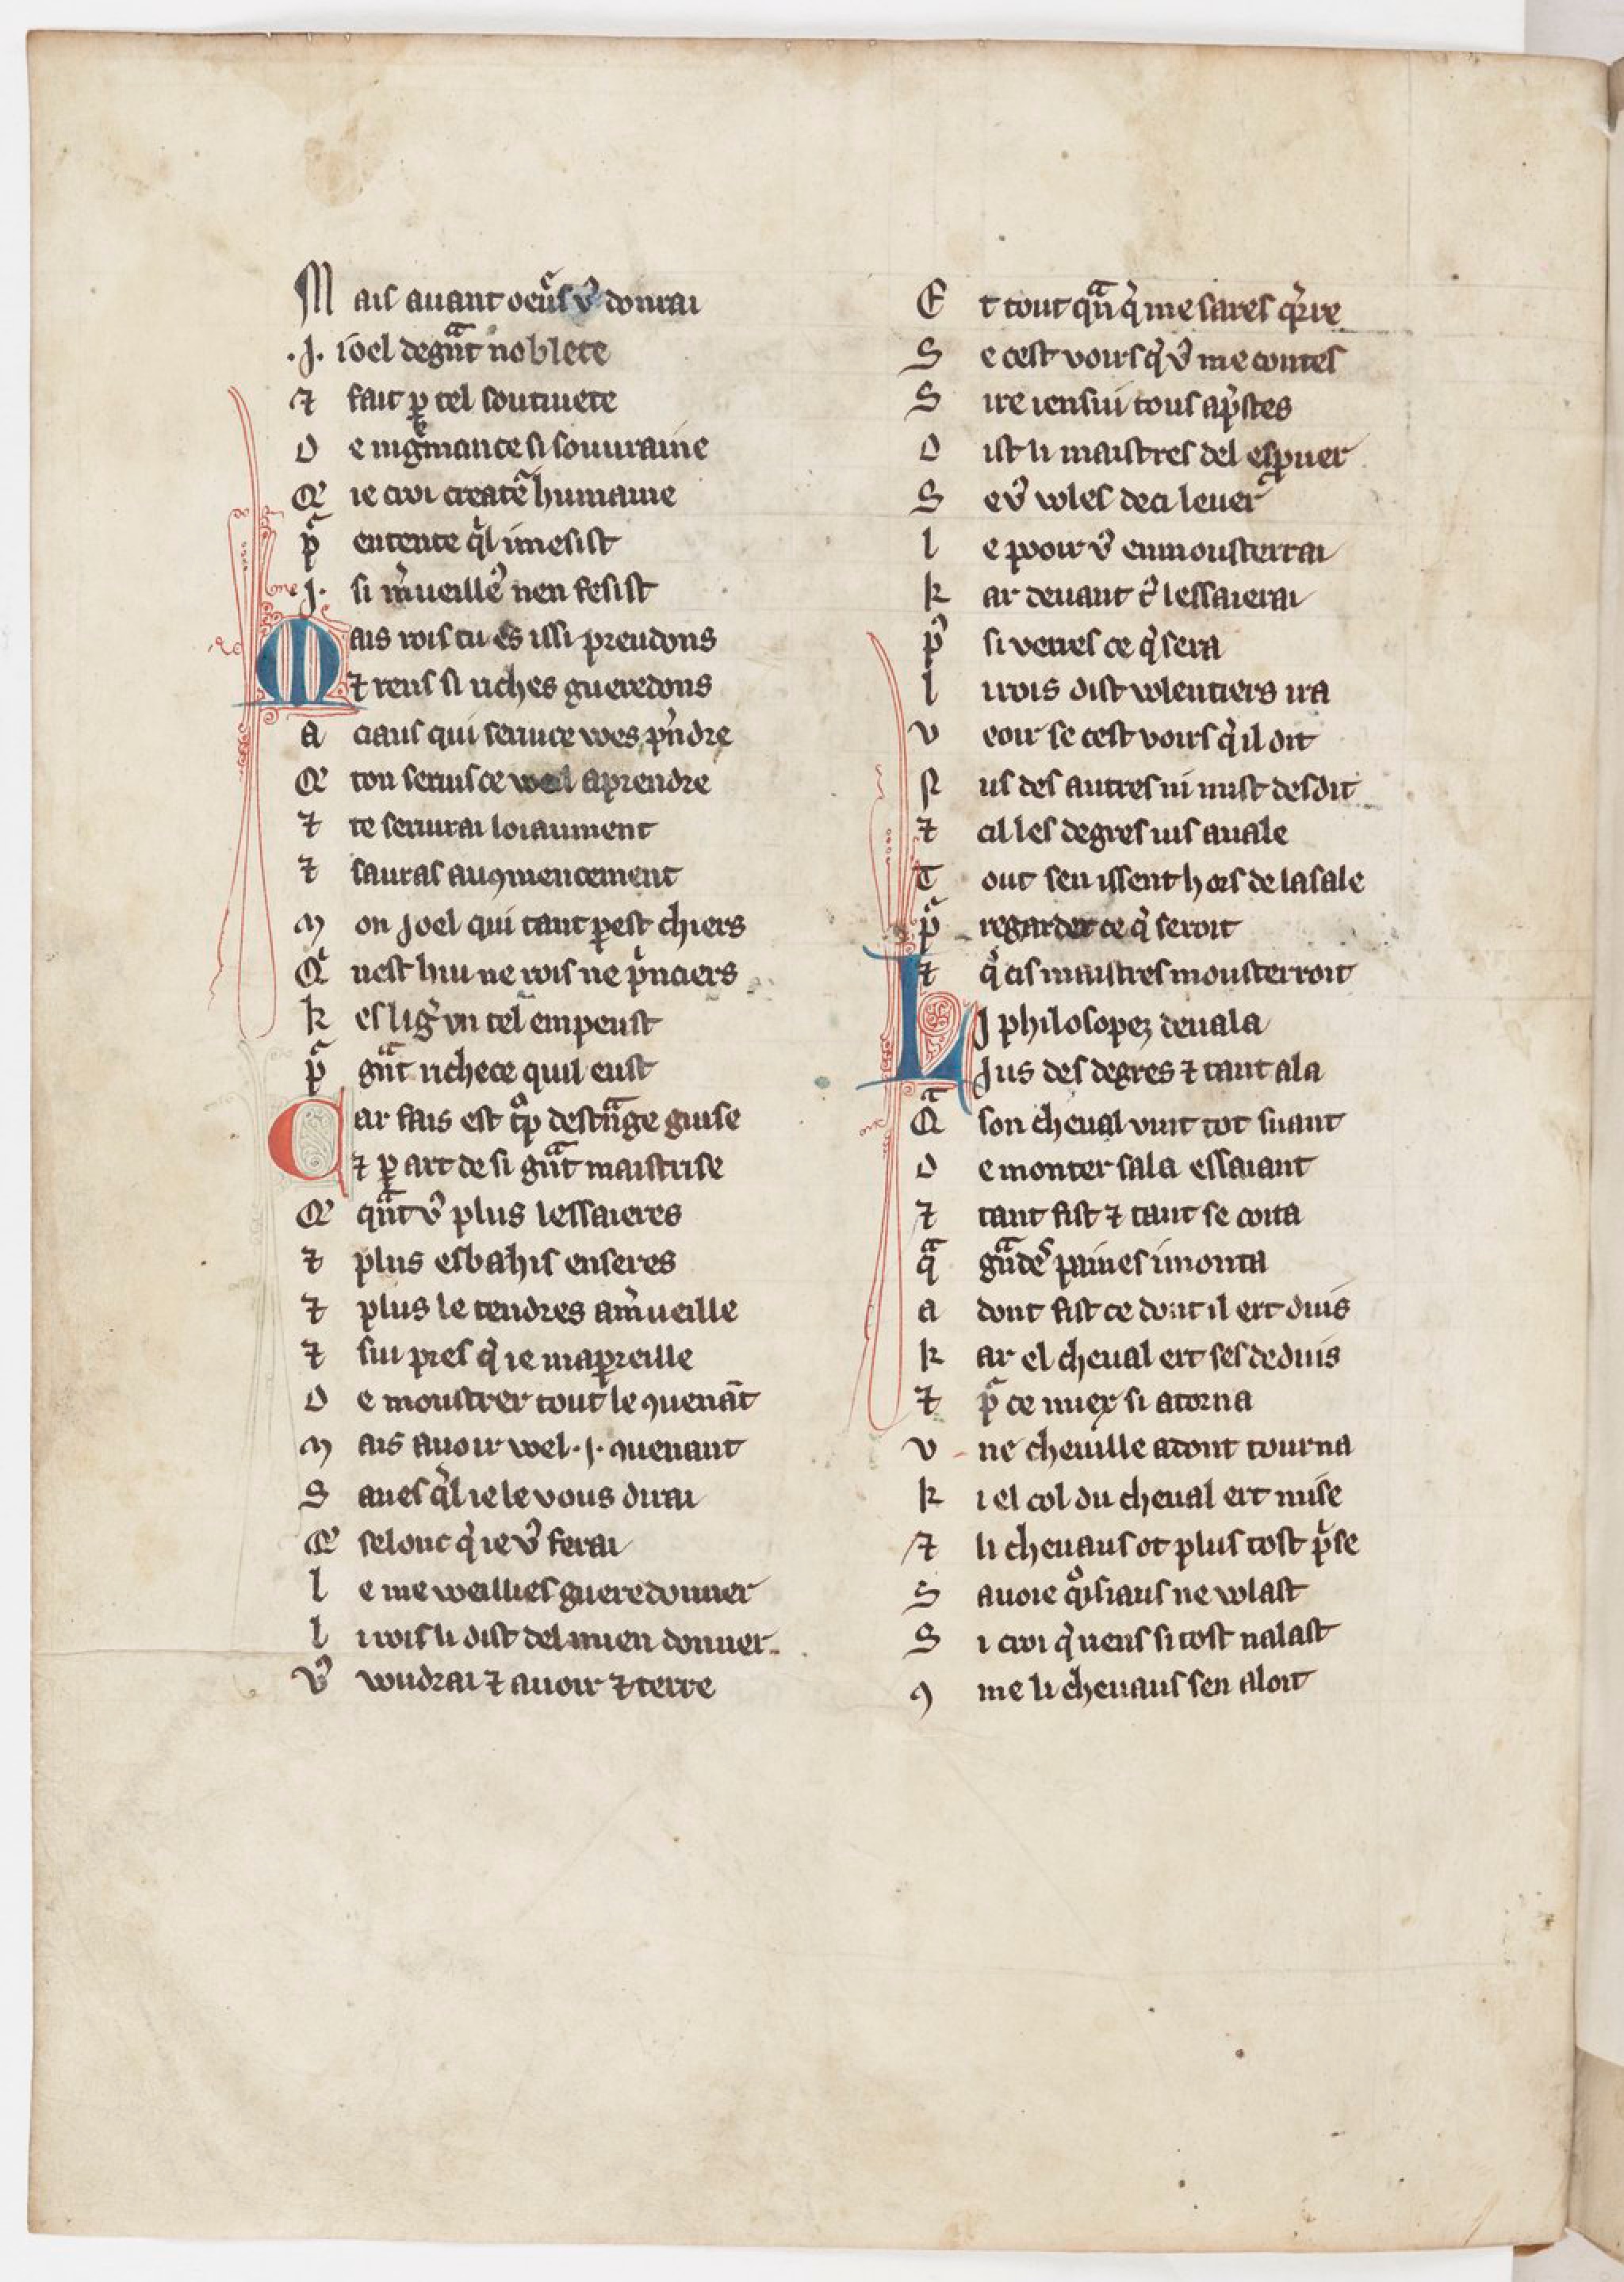 Mais auant oeuͬs vꝰ donrai
.J. ioel degnͣt noblete
⁊ fait ꝑ tel soutiuete
De nigͬmance si souuraine
Qͤ ie croi creatͬe humaine
pͬ entente qͥl i mesist
.J. si mͥueillꝰ nen fesist
Mais rois tu es issi preudons
⁊ rens si riches gueredons
A ciaus qui seruice voes pͥndre
Qͤ ton seruisce voel aprendre
⁊ te seruirai loiaument
⁊ sauras auꝯmencement
Mon Joel qui tant ꝑ est chiers
Qͥ nest hui ne rois ne pͥnciers
Kes ligͥ vn tel em peust
pͬ gnͣt richece quil eust
Car fais est tͬop destnͣge guise
⁊ ꝑ art de si gnͣt maistrise
Qͤ qnͣt vꝰ plus lessaieres
⁊ plus esbahis enseres
⁊ plus le tendres amͥueille
⁊ sui pres qͥ ie mapareille
De moustrer tout le ꝯuenāt
Mais auoir voel .J. ꝯuenant
Saues qͥl ie le vous dirai
Qͤ selonc qͥ ie vꝰ ferai
Le me weillies gueredonner
Li rois li dist del mien donner
Vꝰ voudrai ⁊ auoir ⁊ terre
Et tout qnͣ qͥ me sares qͥrre
Se cest voirs qͥ vꝰ me contes
Sire iensui tous apͥstes
Dist li maistres del esprouer
Se vꝰ voles deci leuer
Le pooir vꝰ en mousterrai
Kar deuant tͦ lessaierai
pꝰ si verres ce qͥ sera
Li rois dist volentiers ira
Veoir se cest voirs qͥ il dit
Nus des autres ni mist desdit
⁊ cil les degres ius auale
Tout sen issent hors de la sale
pͬ regarder ce qͥ seroit
⁊ qͥ cis maistres mousterroit
LJ philosopeʒ deuala
Jus des degres ⁊ tant ala
Qͣ son cheual vint tot suant
De monter sala essaiant
⁊ tant fist ⁊ tant se coita
qͣ gnͣdeˢ paines i monta
Adont fist ce dont il ert duis
Kar el cheual ert ses deduis
⁊ pͬ ce miex si atorna
Vne cheuille adont tourna
Ki el col du cheual ert mise
⁊ li cheuaus ot plus tost pͥse
Sa uoie qͦisiaus ne volast
Si croi qͥ uens si tost nalast
ꝯme li cheuaus sen aloit